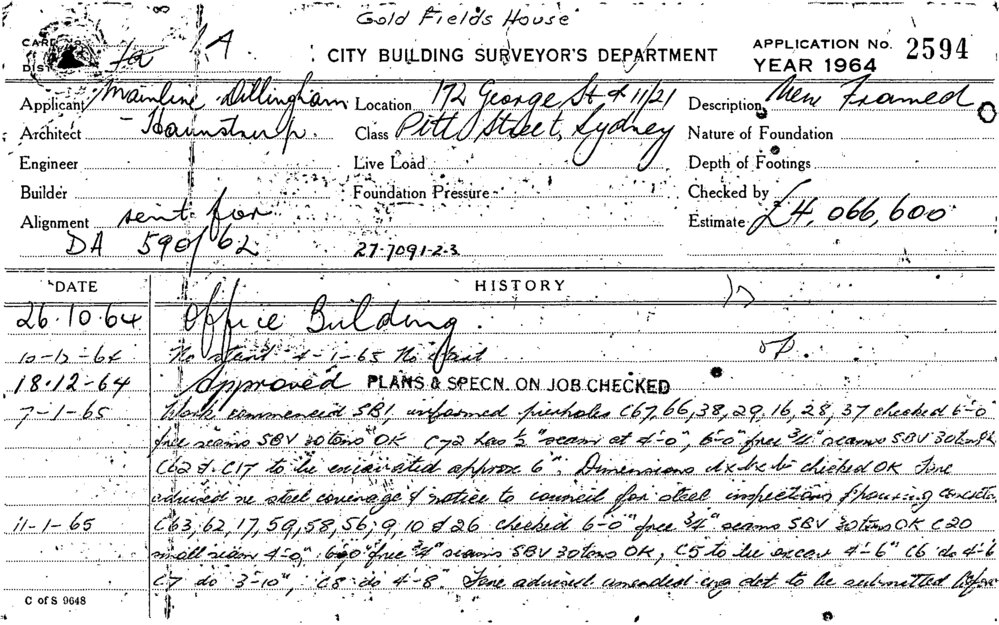 Gold Fields House
CARD
DIST for 1A CITY BUILDING SURVEYOR'S DEPARTMENT APPLICATION No. 2594
YEAR 1964
Applicant Mainline Dillingham Location 172 George St & 11/21 Description New Framed
Architect - Haunstrup. Class Pitt Street, Sydney Nature of Foundation
Engineer Live Load Depth of Footings
Builder Foundation Pressure Checked by
Alignment sent for Estimate £4,066,600
DA 590/62 27-7091-2-3
DATE HISTORY
26.10.64 Office Building.
10-12-64 No start 4-1-65 No start
18.12-64 Approved PLANS & SPECN. ON JOB CHECKED
7-1-65 Work commenced SB1, pierholes C67, 66, 38, 29, 16, 28, 37 checked 6'-0"
free seams SBV 30 tons OK C72 has ½" seam at 4'-0", 6'-0" free ¾" seams SBV 30 tons OK
C62 & C17 to be excavated approx 6". Dimensions checked OK
advised re steel coverage & notice to council for steel inspections & pouring concrete
11-1-65 C63, 62, 17, 59, 58, 56, 9, 10 & 26 checked 6'-0" free ¾" seams SBV 30 tons OK C20
small seam 4'-0", 6'-0" free ¾" seams SBV 30 tons OK, C5 to be excav 4'-6" C6 do 4'-6
C7 do 3'-10", C8 do 4'-8". advised amended eng det to be submitted before
C of S 9648